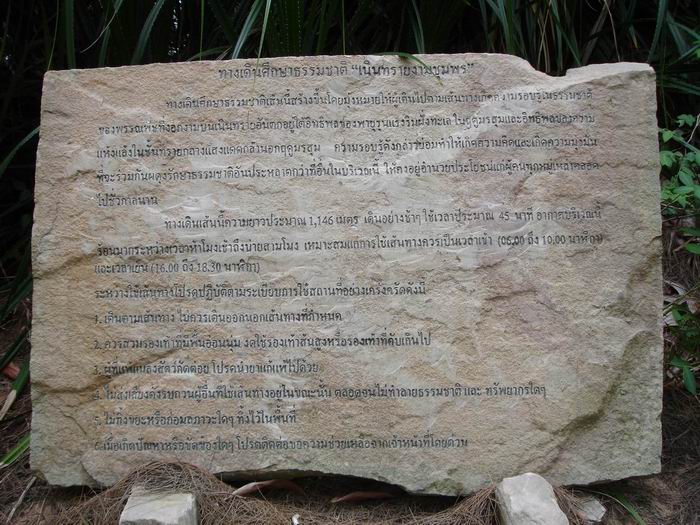 ทางเดินศึกษาธรรมชาติ "เนินทรายงามชุมพร"
ทางเดินศึกษาธรรมชาติเส้นนี้สร้างขึ้นโดยมุ่งหมายให้ผู้เดินไปตามเส้นทางเกิดความรอบรู้ในธรรมชาติ
ของพรรณพืชที่งอกงามบนเนินทรายอันตกอยู่ใต้อิทธิพลของพายุรุนแรงริมฝั่งทะเล ในฤดูมรสุมและอิทธิพลของความ
แห้งแล้งในชั้นทรายกลางแสงแดดกล้านอกฤดูมรสุม ความรอบรู้ดังกล่าวย่อมทำให้เกิดความคิดและเกิดความมุ่งมั่น
ที่จะร่วมกันผดุงรักษาธรรมชาติอันประหลาดกว่าที่อื่นในบริเวณนี้ ให้คงอยู่อำนวยประโยชน์แก่ผู้คนทุกหมู่เหล่าตลอด
ไปชั่วกาลนาน
ทางเดินเส้นนี้ความยาวประมาณ 1,146 เมตร เดินอย่างช้าๆ ใช้เวลาประมาณ 45 นาที อากาศบริเวณนี้
ร้อนมากระหว่างเวลาห้าโมงเช้าถึงบ่ายสามโมง เหมาะสมแก่การใช้เส้นทางควรเป็นเวลาเช้า (06.00 ถึง 10.00 นาฬิกา)
และเวลาเย็น (16.00 ถึง 18.30 นาฬิกา)
ระหว่างใช้เส้นทางโปรดปฏิบัติตามระเบียบการใช้สถานที่อย่างเคร่งครัดดังนี้
1. เดินตามเส้นทาง ไม่ควรเดินออกนอกเส้นทางที่กำหนด
2. ควรสวมรองเท้าที่มีพื้นอ่อนนุ่ม งดใช้รองเท้าส้นสูงหรือรองเท้าที่คับเกินไป
3. ผู้ที่แพ้แมลงสัตว์กัดต่อย โปรดนำยาแก้แพ้ไปด้วย
4. ไม่ส่งเสียงดังรบกวนผู้อื่นที่ใช้เส้นทางอยู่ในขณะนั้น ตลอดจนไม่ทำลายธรรมชาติ และ ทรัพยากรใดๆ
5. ไม่ทิ้งขยะหรือก่อมลภาวะใดๆ ทิ้งไว้ในพื้นที่
6. เมื่อเกิดปัญหาหรือขัดข้องใดๆ โปรดติดต่อขอความช่วยเหลือจากเจ้าหน้าที่โดยด่วน